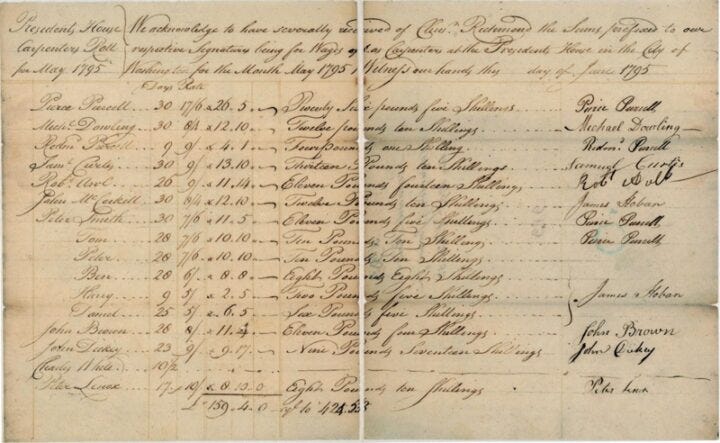 Presidents House We acknowledge to have severally received of Clem.n Richmond the Sums prefixed to our
Carpenters Roll respective Signatures being for Wages as Carpenters at the Presidents House in the City of
for May 1795 Washington for the Month May 1795 Witness our hands this day of June 1795
Days Rate
Pierce Purcell 30 17/6 £ 26.5 Twenty Six pounds five Shillings Pierce Purcell
Michl Dowling 30 8/4 £ 12.10 Twelve pounds ten Shillings Michael Dowling
Redmn Purcell 9 9/ £ 4.1 Four pounds one Shilling Redmn Purcell
Saml Curtis 30 9/ £ 13.10 Thirteen Pounds ten Shillings Samuel Curtis
Robt Aul 26 9/ £ 11.14 Eleven Pounds fourteen Shillings Robt Aull
McCorkill 30 8/4 £ 12.10 Twelve Pounds ten Shillings James Hoban
Peter Smith 30 7/6 £ 11.5 Eleven Pounds five Shillings Pierce Purcell
Tom 28 7/6 £ 10.10 Ten Pounds Ten Shillings Pierce Purcell
Peter 28 7/6 £ 10.10 Ten Pounds Ten Shillings
Ben 28 6/ £ 8.8 Eight Pounds Eight Shillings
Harry 9 5/ £ 2.5 Two Pounds five Shillings James Hoban
Daniel 25 5/ £ 6.5 Six Pounds five Shillings
John Brown 28 8/ £ 11.4 Eleven Pounds four Shillings John Brown
John Dukey 23 9/ £ 9.17 Nine Pounds Seventeen Shillings John Dukey
10/2
Peter Lenox 17 10/ £ 8.10.0 Eight Pounds ten Shillings Peter Lenox
£ 159.4.0